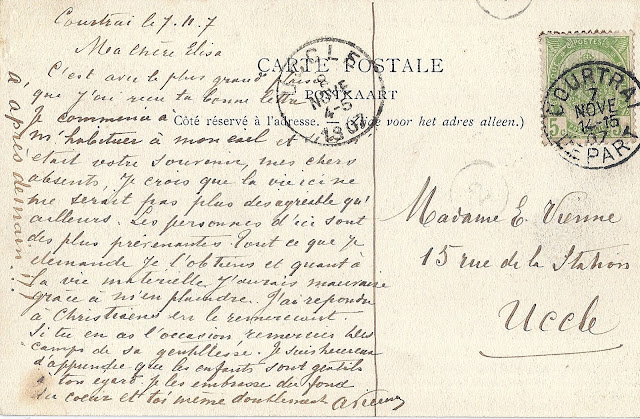 Courtrai le 7.11.7
Ma chère Elisa
C'est avec le plus grand plaisir
que j'ai reçu ta bonne lettre
Je commence à
m'habituer à mon exil et
était votre souvenir, mes chers
absents, je crois que la vie ici ne
me serait pas plus desagreable qu'
ailleurs. Les personnes d'ici sont
des plus prévenantes. Tout ce que je
demande je l'obtiens et quant à
la vie materielle, j'aurais mauvaise
grâce à m'en plaindre. J'ai repondu
à Christiaens en le remerciant.
Si tu en as l'occasion, remercies
camps de sa gentillesse. Je suis heureux
d'apprendre que les enfants sont gentils
à ton egard. Je les embrasse du fond
du coeur et toi même doublement
à après demain!!!
CARTE POSTALE
POSTKAART
Côté réservé à l'adresse. — (Zijde voor het adres alleen.)
UCCLE
8
NOVE
4-5
1907
POSTES
5
COURTRAI
7
NOVE
14-15
07
DEPART
Madame E. Vienne
15 rue de la Station
Uccle